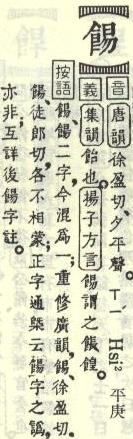 餳
音 唐韻 徐盈切夕平聲。ㄒㄧ Hsi² 平庚
義 集韻 飴也。揚子方言 餳謂之餦餭。
按語 餳、餳二字、今混爲一。重修廣韻、餳、徐盈切。
餳、徒郎切、各不相蒙。正字通槩云餳字之譌、
亦非。互詳後餳字註。